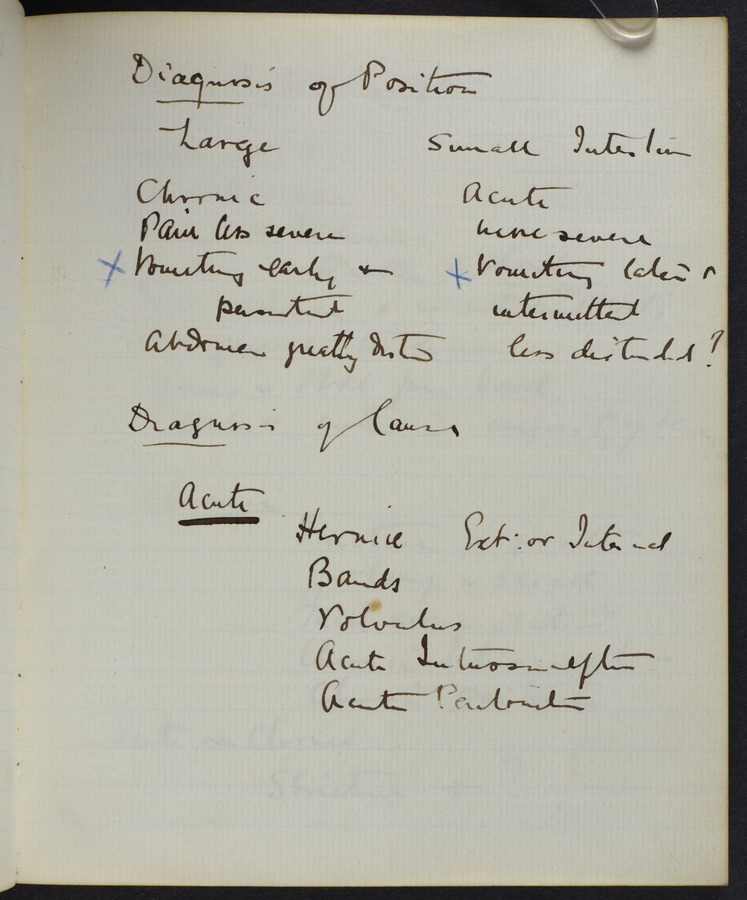 Diagnosis of Position
Large Small Intestin
Chronic Acute
Pain less severe more severe
x Vomiting early & x Vomiting later &
persistent intermittent
Abdomen greatly dist less distended?
Diagnosis of Cause
Acute
Herniæ Ext: or Internal
Bands
Volvulus
Acute Intussusception
Acute Peritonitis